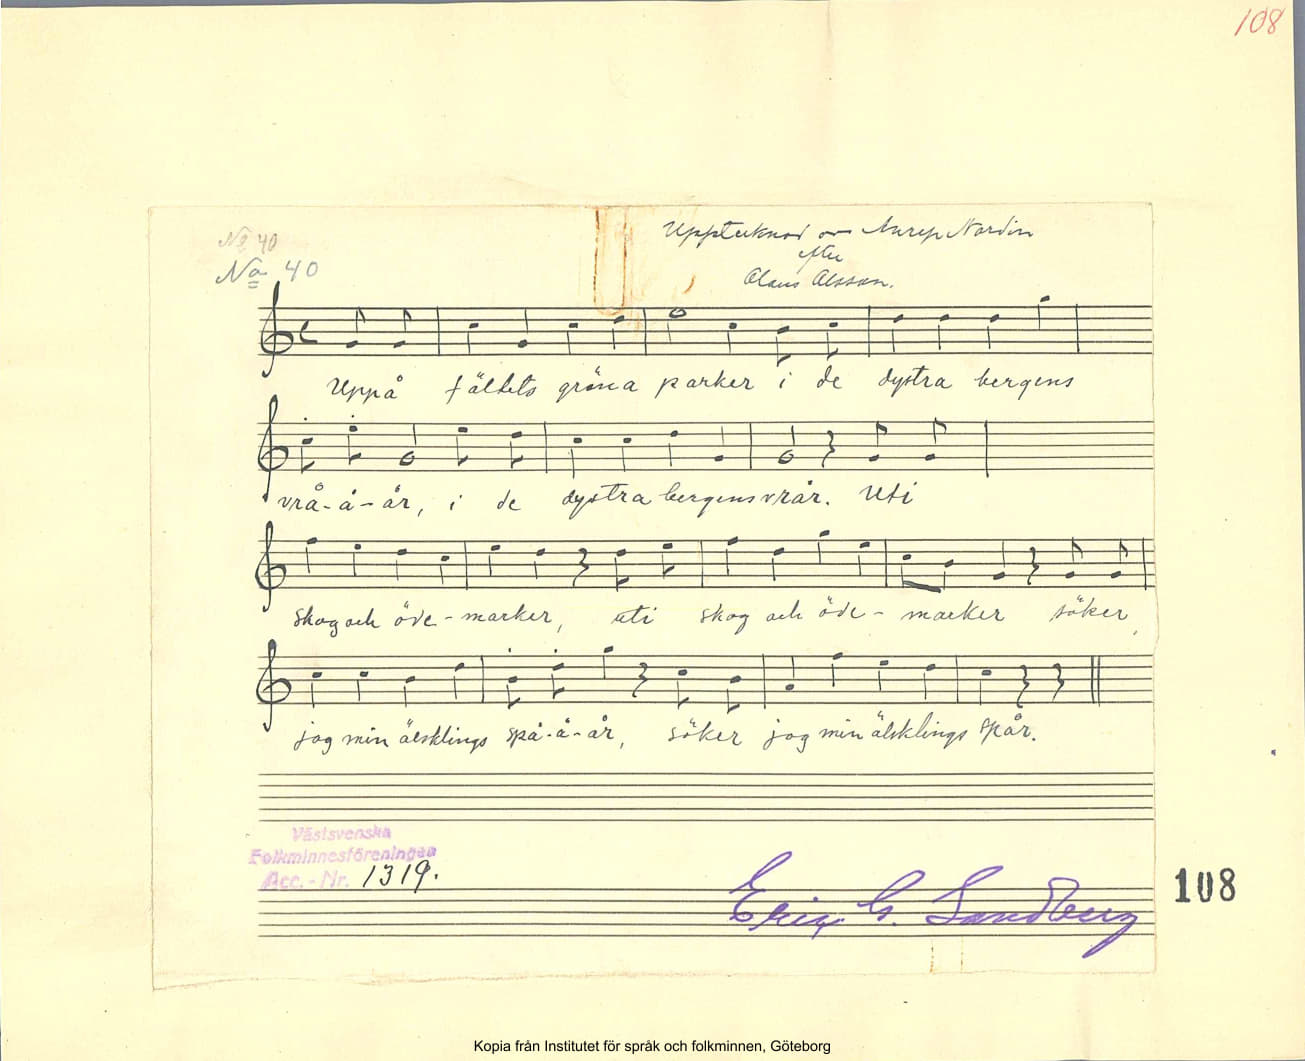 108
No 40
No 40
Upptecknad av Nordin
efter
Olaus Olsson.
Uppå fältets gröna parker i de dystra bergens
vrå-å-år, i de dystra bergens vrår. Uti
skog och öde-marker, uti skog och öde-marker söker,
jag min älsklings spå-å-år, söker jag min älsklings spår.
Västsvenska
Folkminnesföreningen
Acc.-Nr. 1319.
Eric G. Sandberg
108
Kopia från Institutet för språk och folkminnen, Göteborg